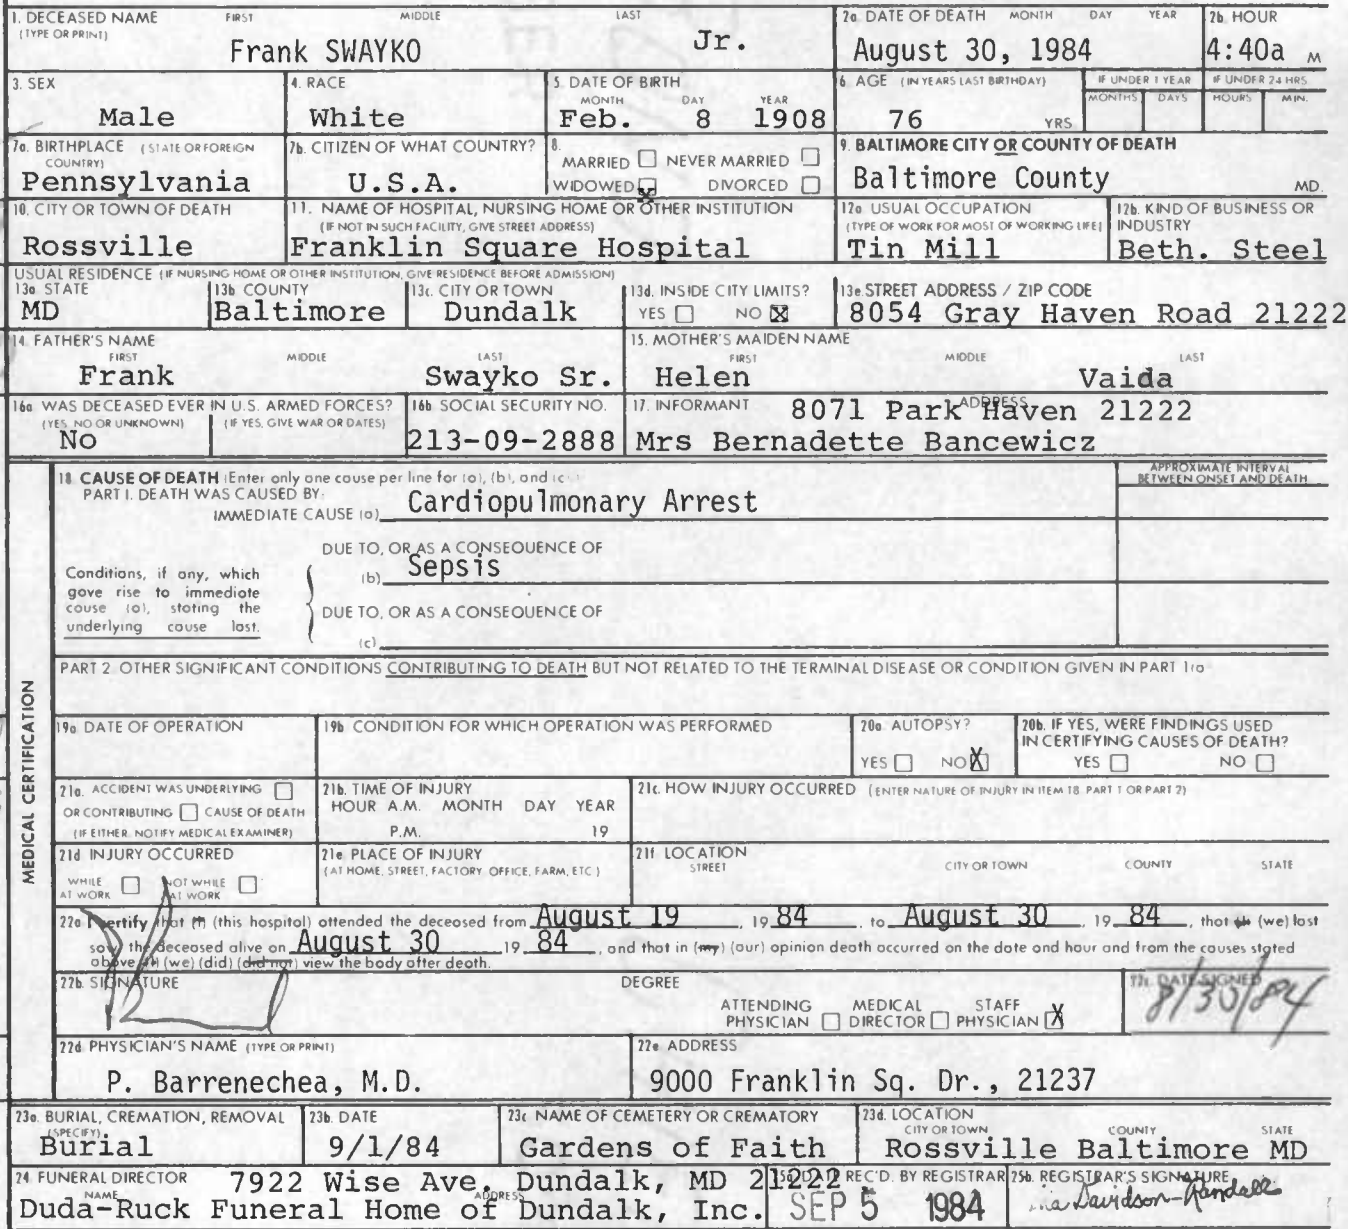 1. DECEASED NAME FIRST MIDDLE LAST
(TYPE OR PRINT)
Frank SWAYKO Jr.
2a. DATE OF DEATH MONTH DAY YEAR
August 30, 1984
2b. HOUR
4:40a M
3. SEX
Male
4. RACE
White
5. DATE OF BIRTH
MONTH DAY YEAR
Feb. 8 1908
6. AGE (IN YEARS LAST BIRTHDAY)
76 YRS
IF UNDER 1 YEAR
MONTHS DAYS
IF UNDER 24 HRS
HOURS MIN.
7a. BIRTHPLACE (STATE OR FOREIGN
COUNTRY)
Pennsylvania
7b. CITIZEN OF WHAT COUNTRY?
U.S.A.
8.
MARRIED NEVER MARRIED
WIDOWED X DIVORCED
9. BALTIMORE CITY OR COUNTY OF DEATH
Baltimore County MD.
10. CITY OR TOWN OF DEATH
Rossville
11. NAME OF HOSPITAL, NURSING HOME OR OTHER INSTITUTION
(IF NOT IN SUCH FACILITY, GIVE STREET ADDRESS)
Franklin Square Hospital
12a. USUAL OCCUPATION
(TYPE OF WORK FOR MOST OF WORKING LIFE)
Tin Mill
12b. KIND OF BUSINESS OR
INDUSTRY
Beth. Steel
USUAL RESIDENCE (IF NURSING HOME OR OTHER INSTITUTION, GIVE RESIDENCE BEFORE ADMISSION)
13a. STATE
MD
13b. COUNTY
Baltimore
13c. CITY OR TOWN
Dundalk
13d. INSIDE CITY LIMITS?
YES NO X
13e. STREET ADDRESS / ZIP CODE
8054 Gray Haven Road 21222
14. FATHER'S NAME
FIRST MIDDLE LAST
Frank Swayko Sr.
15. MOTHER'S MAIDEN NAME
FIRST MIDDLE LAST
Helen Vaida
16a. WAS DECEASED EVER IN U.S. ARMED FORCES?
(YES, NO OR UNKNOWN) (IF YES, GIVE WAR OR DATES)
No
16b. SOCIAL SECURITY NO.
213-09-2888
17. INFORMANT ADDRESS
8071 Park Haven 21222
Mrs Bernadette Bancewicz
MEDICAL CERTIFICATION
18. CAUSE OF DEATH (Enter only one cause per line for (a), (b), and (c)
PART I. DEATH WAS CAUSED BY:
IMMEDIATE CAUSE (a) Cardiopulmonary Arrest
APPROXIMATE INTERVAL
BETWEEN ONSET AND DEATH
Conditions, if any, which
gave rise to immediate
cause (a), stating the
underlying cause last.
DUE TO, OR AS A CONSEQUENCE OF
(b) Sepsis
DUE TO, OR AS A CONSEQUENCE OF
(c)
PART 2. OTHER SIGNIFICANT CONDITIONS CONTRIBUTING TO DEATH BUT NOT RELATED TO THE TERMINAL DISEASE OR CONDITION GIVEN IN PART 1(a)
19a. DATE OF OPERATION
19b. CONDITION FOR WHICH OPERATION WAS PERFORMED
20a. AUTOPSY?
YES NO X
20b. IF YES, WERE FINDINGS USED
IN CERTIFYING CAUSES OF DEATH?
YES NO
21a. ACCIDENT WAS UNDERLYING
OR CONTRIBUTING CAUSE OF DEATH
(IF EITHER, NOTIFY MEDICAL EXAMINER)
21b. TIME OF INJURY
HOUR A.M. MONTH DAY YEAR
P.M. 19
21c. HOW INJURY OCCURRED (ENTER NATURE OF INJURY IN ITEM 18, PART 1 OR PART 2)
21d. INJURY OCCURRED
WHILE AT WORK NOT WHILE AT WORK
21e. PLACE OF INJURY
(AT HOME, STREET, FACTORY, OFFICE, FARM, ETC.)
21f. LOCATION
STREET CITY OR TOWN COUNTY STATE
22a. I certify that (I) (this hospital) attended the deceased from August 19, 19 84 to August 30, 19 84, that (I) (we) last
saw the deceased alive on August 30 19 84, and that in (my) (our) opinion death occurred on the date and hour and from the causes stated
above. (I) (we) (did) (did not) view the body after death.
22b. SIGNATURE DEGREE
ATTENDING PHYSICIAN MEDICAL DIRECTOR STAFF PHYSICIAN X
22c. DATE SIGNED
8/30/84
22d. PHYSICIAN'S NAME (TYPE OR PRINT)
P. Barrenechea, M.D.
22e. ADDRESS
9000 Franklin Sq. Dr., 21237
23a. BURIAL, CREMATION, REMOVAL
(SPECIFY)
Burial
23b. DATE
9/1/84
23c. NAME OF CEMETERY OR CREMATORY
Gardens of Faith
23d. LOCATION
CITY OR TOWN COUNTY STATE
Rossville Baltimore MD
24. FUNERAL DIRECTOR
7922 Wise Ave. Dundalk, MD 21222
NAME ADDRESS
Duda-Ruck Funeral Home of Dundalk, Inc.
REC'D. BY REGISTRAR
SEP 5 1984
25b. REGISTRAR'S SIGNATURE
Davidson-Randall